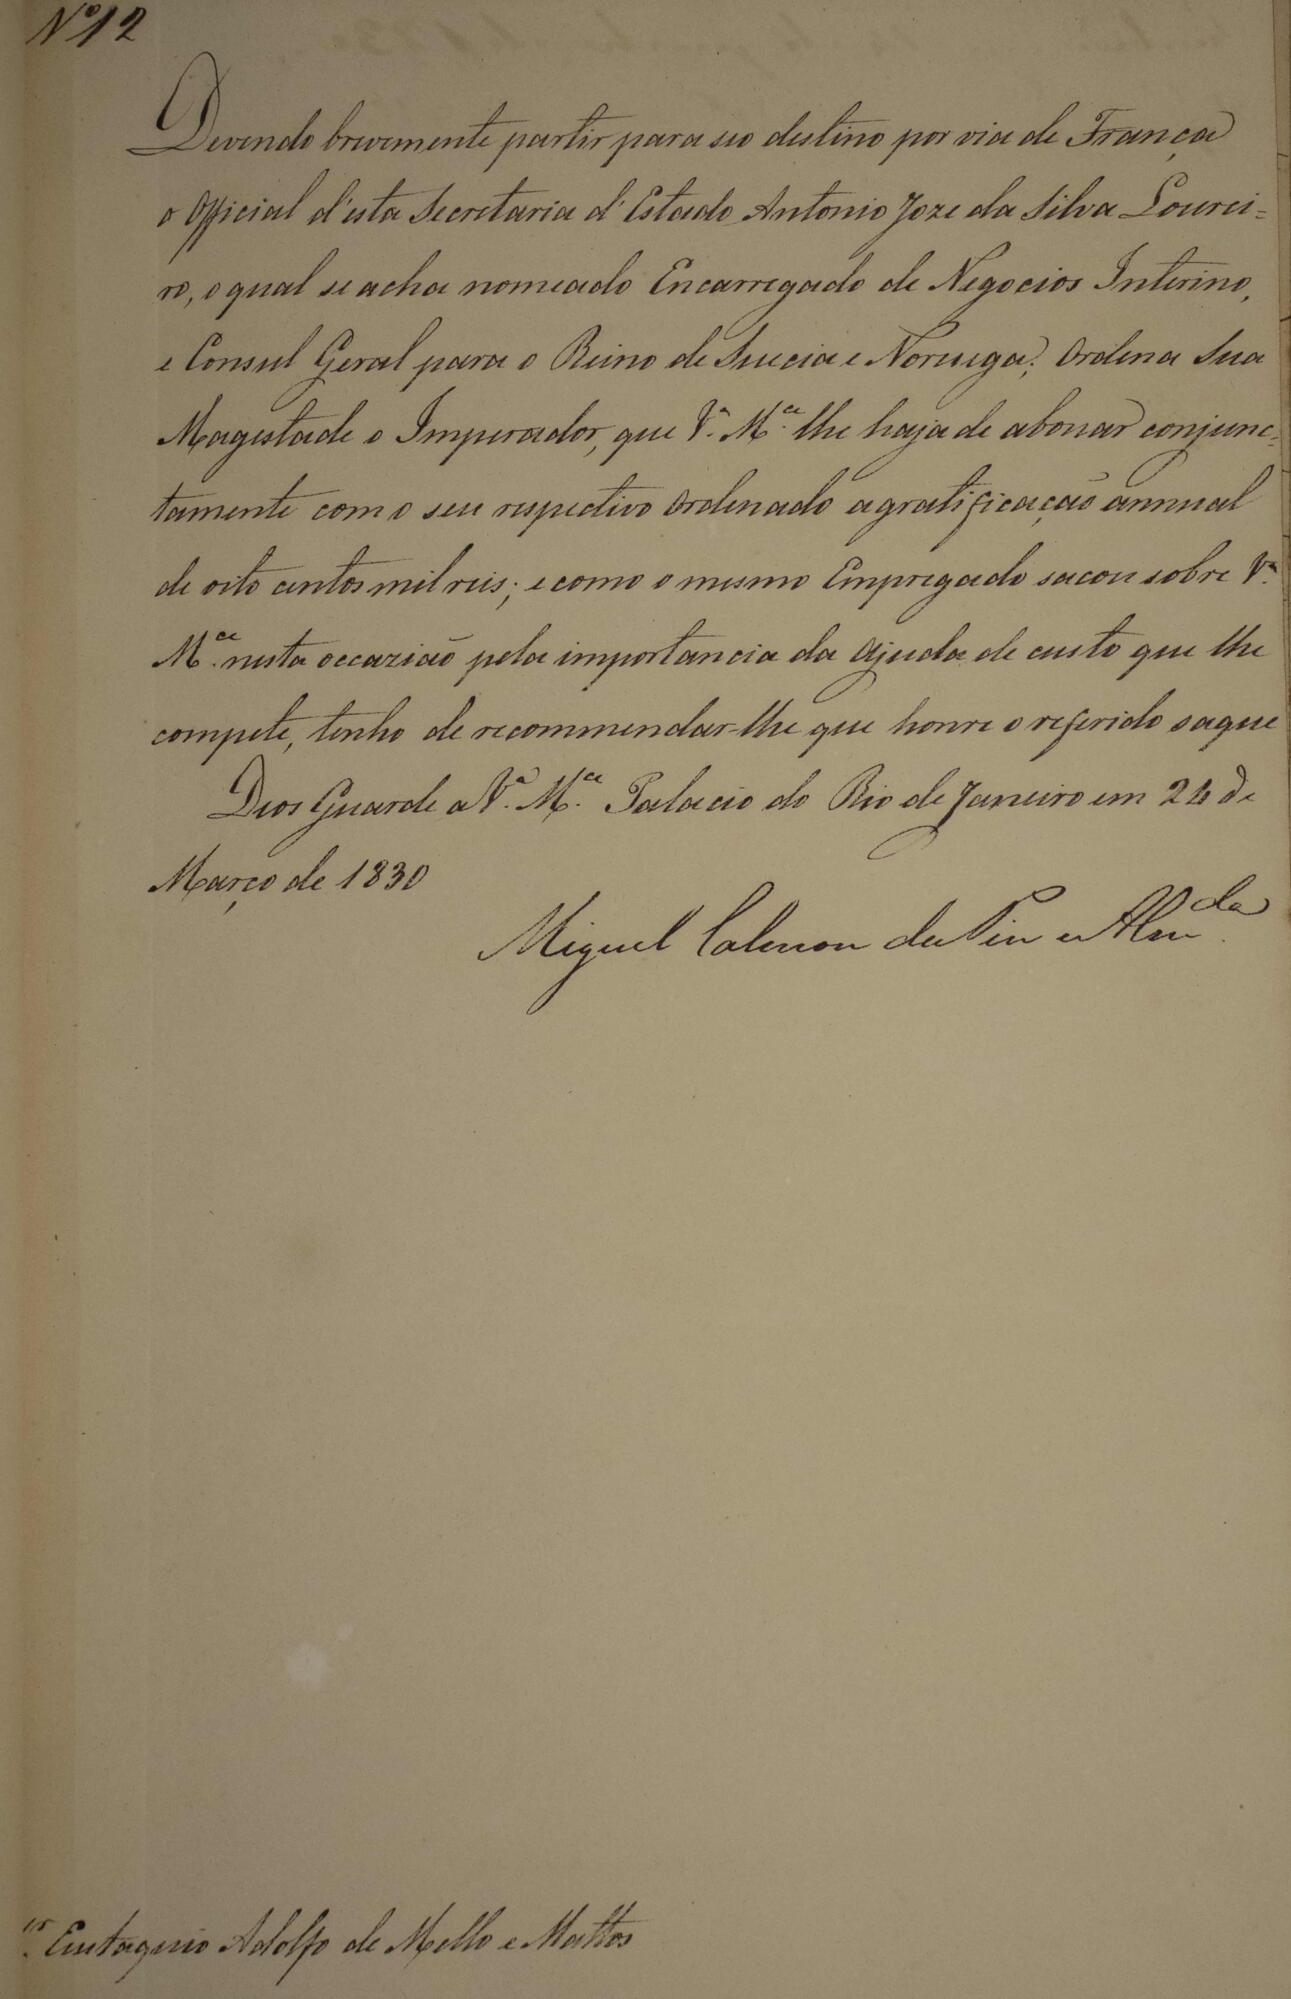 Nº 12
Devendo brevemente partir para seo destino por via de França
o Official d'esta Secretaria d'Estado Antonio Joze da Silva Lourei=
ro, o qual se acha nomeado Encarregado de Negocios Interino,
e Consul Geral para o Reino de Suecia e Noruega; Ordena Sua
Magestade o Imperador, que V.ª M.ce lhe haja de abonar conjunc=
tamente com o seu respectivo Ordenado a gratificação annual
de oito centos mil reis; e como o mesmo Empregado sacou sobre V.ª
M.ce nesta occazião pela importancia da Ajuda de custo que lhe
compete, tenho de recommendar-lhe que honre o referido saque
Deos Guarde a V.ª M.ce Palacio do Rio de Janeiro em 24 de
Março de 1830
Miguel Calmon du Pin e Alm.da
Eustaquio Adolfo de Mello e Mattos